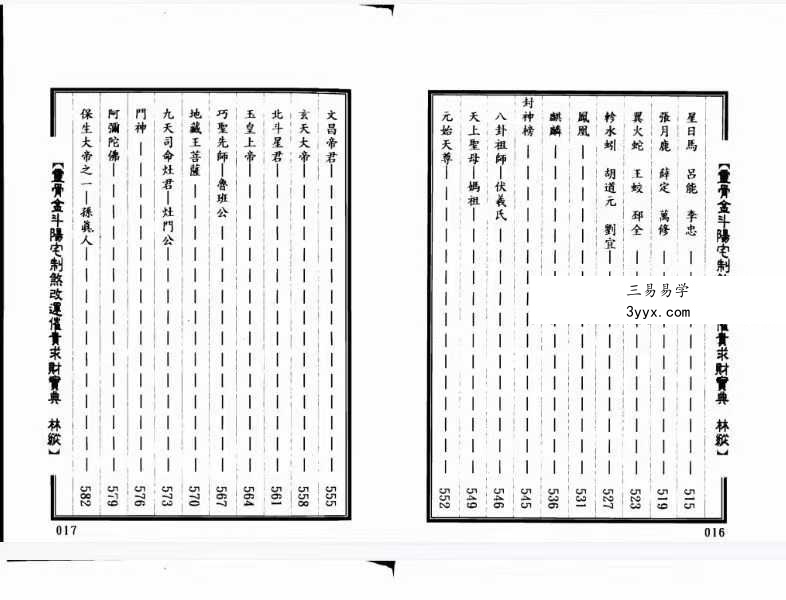 【靈骨金斗陽宅制煞改運催貴求財寶典 林縱】
星日馬 呂能 李忠 515
張月鹿 薛定 萬修 519
翼火蛇 王蛟 邳全 523
軫水蚓 胡道元 劉宜 527
鳳凰 531
麒麟 536
封神榜 545
八卦祖師 伏義氏 546
天上聖母 媽祖 549
元始天尊 552
016
三易易学
3yyx.com
文昌帝君 555
玄天大帝 558
北斗星君 561
玉皇上帝 564
巧聖先師 魯班公 567
地藏王菩薩 570
九天司命灶君 灶門公 573
門神 576
阿彌陀佛 579
保生大帝之一 孫眞人 582
【靈骨金斗陽宅制煞改運催貴求財寶典 林縱】
017